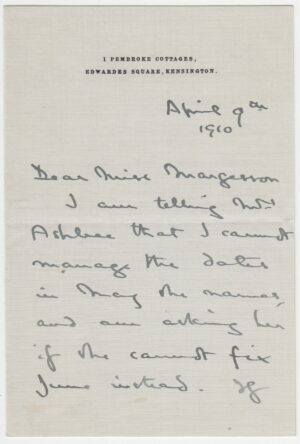 1 PEMBROKE COTTAGES,
EDWARDES SQUARE, KENSINGTON.
April 9th
1910
Dear Miss Margesson
I am telling Mrs
Ashbee that I cannot
manage the dates
in May she names,
and am asking her
if she cannot fix
June instead. If